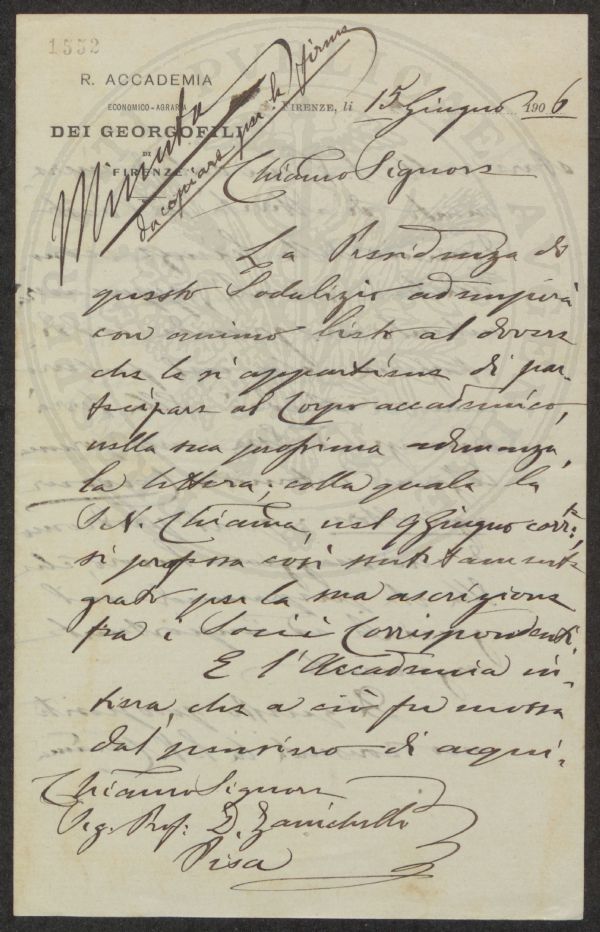 1552
R. ACCADEMIA
ECONOMICO-AGRARIA
DEI GEORGOFILI
DI
FIRENZE
Minuta
da copiare per la firma
FIRENZE, lì 15 Giugno 1906
Chiamo Signore
La Presidenza di
questo Sodalizio adempirà
con animo lieto al dovere
che le si appartiene di par-
tecipare al Corpo accademico,
nella sua prossima adunanza,
la lettera, colla quale la
S.V. Chiama, nel 9 Giugno corrte,
si professa così sentitamente
grato per la sua ascrizione
fra i Socii Corrispondenti.
E l'Accademia in-
tiera, che a ciò fu mossa
dal pensiero di acqui-
Chiamo Signore
Sig. Prof. D. Zanichelli
Pisa